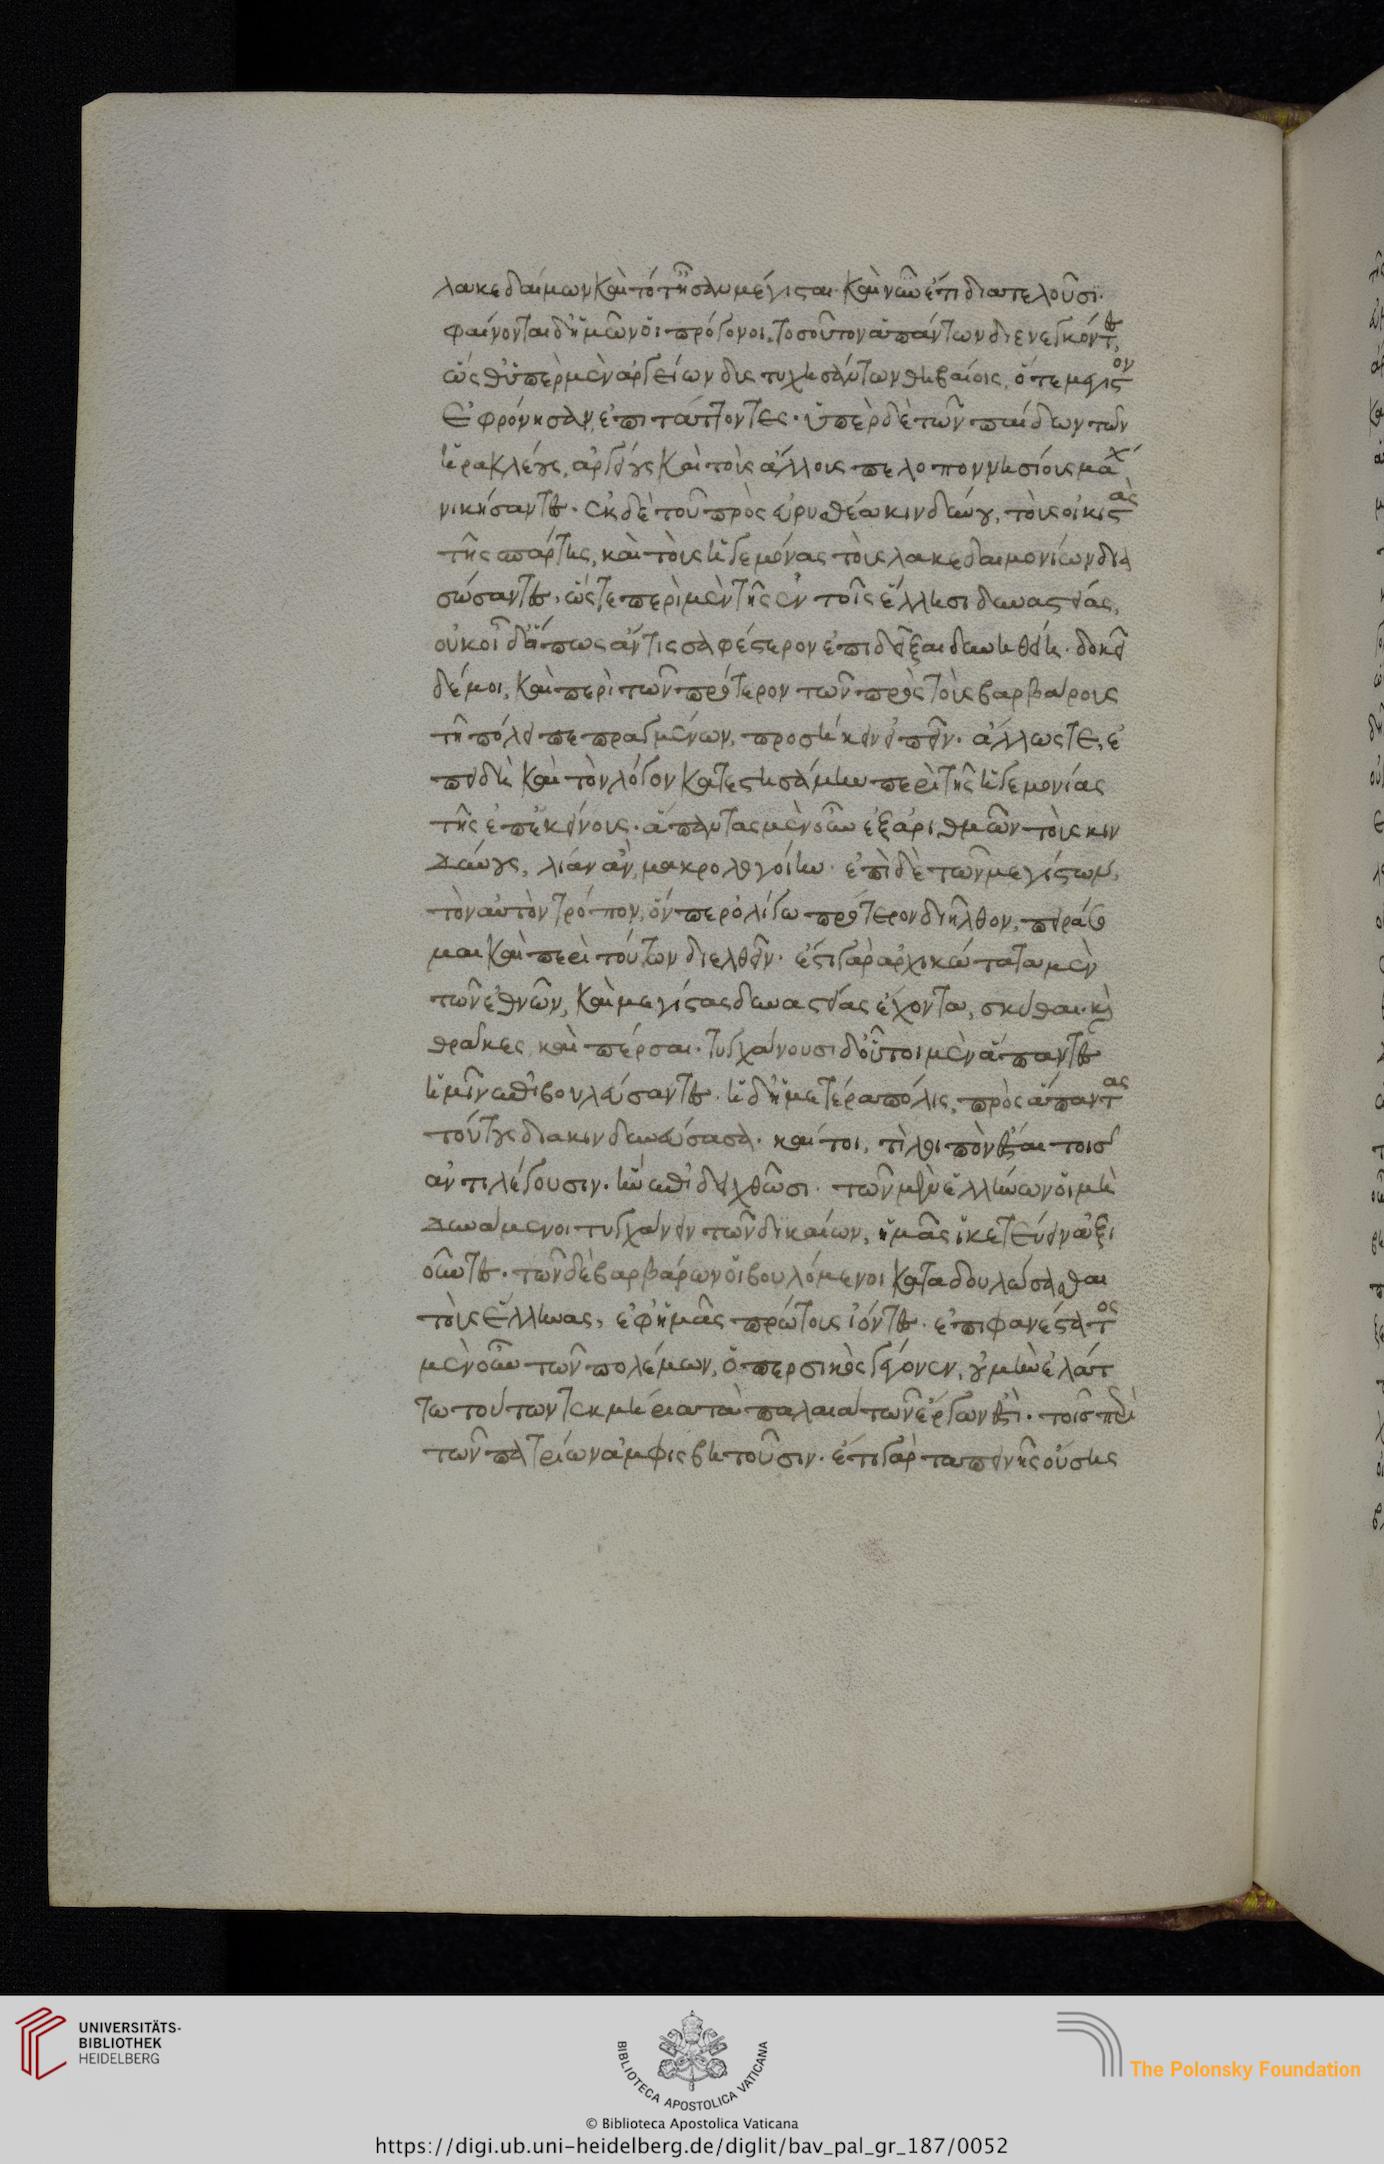 λακεδαίμων καὶ τότ' ἦσαν μέγισται. καὶ νῦν ἔτι διατελοῦσι.
φαίνονται δ' ἡμῶν οἱ πρόγονοι, τοσοῦτον ἁπάντων διενεγκόντες,
ὥσθ' ὑπὲρ μὲν ἀργείων δυστυχησάντων θηβαίοις, ὅτε μέγιστον
ἐφρόνησαν, ἐπιτάττοντες. ὑπὲρ δὲ τῶν παίδων τῶν
ἡρακλέους, ἀργείους καὶ τοὺς ἄλλους πελοποννησίους μάχῃ
νικήσαντες. ἐκ δὲ τοῦ πρὸς εὐρυσθέα κινδύνου, τοὺς οἰκιστὰς
τῆς σπάρτης, καὶ τοὺς ἡγεμόνας τοὺς λακεδαιμονίων δια
σώσαντες. ὥστε περὶ μὲν τῆς ἐν τοῖς ἕλλησι δυναστείας,
οὐκ οἶδ' ὅπως ἄν τις σαφέστερον ἐπιδεῖξαι δυνηθείη. δοκεῖ
δέ μοι, καὶ περὶ τῶν πρότερον τῶν πρὸς τοὺς βαρβάρους
τῇ πόλει πεπραγμένων, προσήκειν εἰπεῖν. ἄλλως τε, ἐ
πειδὴ καὶ τὸν λόγον κατεστησάμην περὶ τῆς ἡγεμονίας
τῆς ἐπ' ἐκείνους. ἅπαντας μὲν οὖν ἐξαριθμῶν τοὺς κιν
δύνους, λίαν ἂν μακρολογοίην. ἐπὶ δὲ τῶν μεγίστων,
τὸν αὐτὸν τρόπον, ὅνπερ ὀλίγῳ πρότερον διῆλθον, πειράσο
μαι καὶ περὶ τούτων διελθεῖν. ἔστι γὰρ ἀρχικώτατα μὲν
τῶν ἐθνῶν, καὶ μεγίστας δυναστείας ἔχοντα, σκύθαι. καὶ
θρᾷκες, καὶ πέρσαι. τυγχάνουσι δ' οὗτοι μὲν ἅπαντες
ἡμῖν ἐπιβουλεύσαντες. ἡ δ' ἡμετέρα πόλις, πρὸς ἅπαντας
τούτους διακινδυνεύσασα. καίτοι, τί λοιπὸν ἔσται τοῖς
ἀντιλέγουσιν. ἢν ἐπιδειχθῶσι. τῶν μὲν ἑλλήνων οἱ μὴ
δυνάμενοι τυγχάνειν τῶν δικαίων, ἡμᾶς ἱκετεύειν ἀξι
οῦντες. τῶν δὲ βαρβάρων οἱ βουλόμενοι καταδουλώσασθαι
τοὺς ἕλληνας, ἐφ' ἡμᾶς πρώτους ἰόντες. ἐπιφανέστατος
μὲν οὖν τῶν πολέμων, ὁ περσικὸς γέγονεν, οὐ μὴν ἐλάτ
τω τούτων τεκμήρια τὰ παλαιὰ τῶν ἔργων ἐστὶ. τοῖς περὶ
τῶν πατρίων ἀμφισβητοῦσιν. ἔτι γὰρ ταπεινῆς οὔσης
UNIVERSITÄTS-
BIBLIOTHEK
HEIDELBERG
BIBLIOTECA APOSTOLICA VATICANA
The Polonsky Foundation
© Biblioteca Apostolica Vaticana
https://digi.ub.uni-heidelberg.de/diglit/bav_pal_gr_187/0052